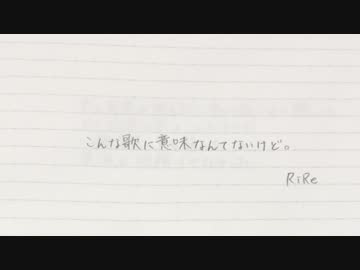 こんな歌に意味なんてないけど。
RiRe